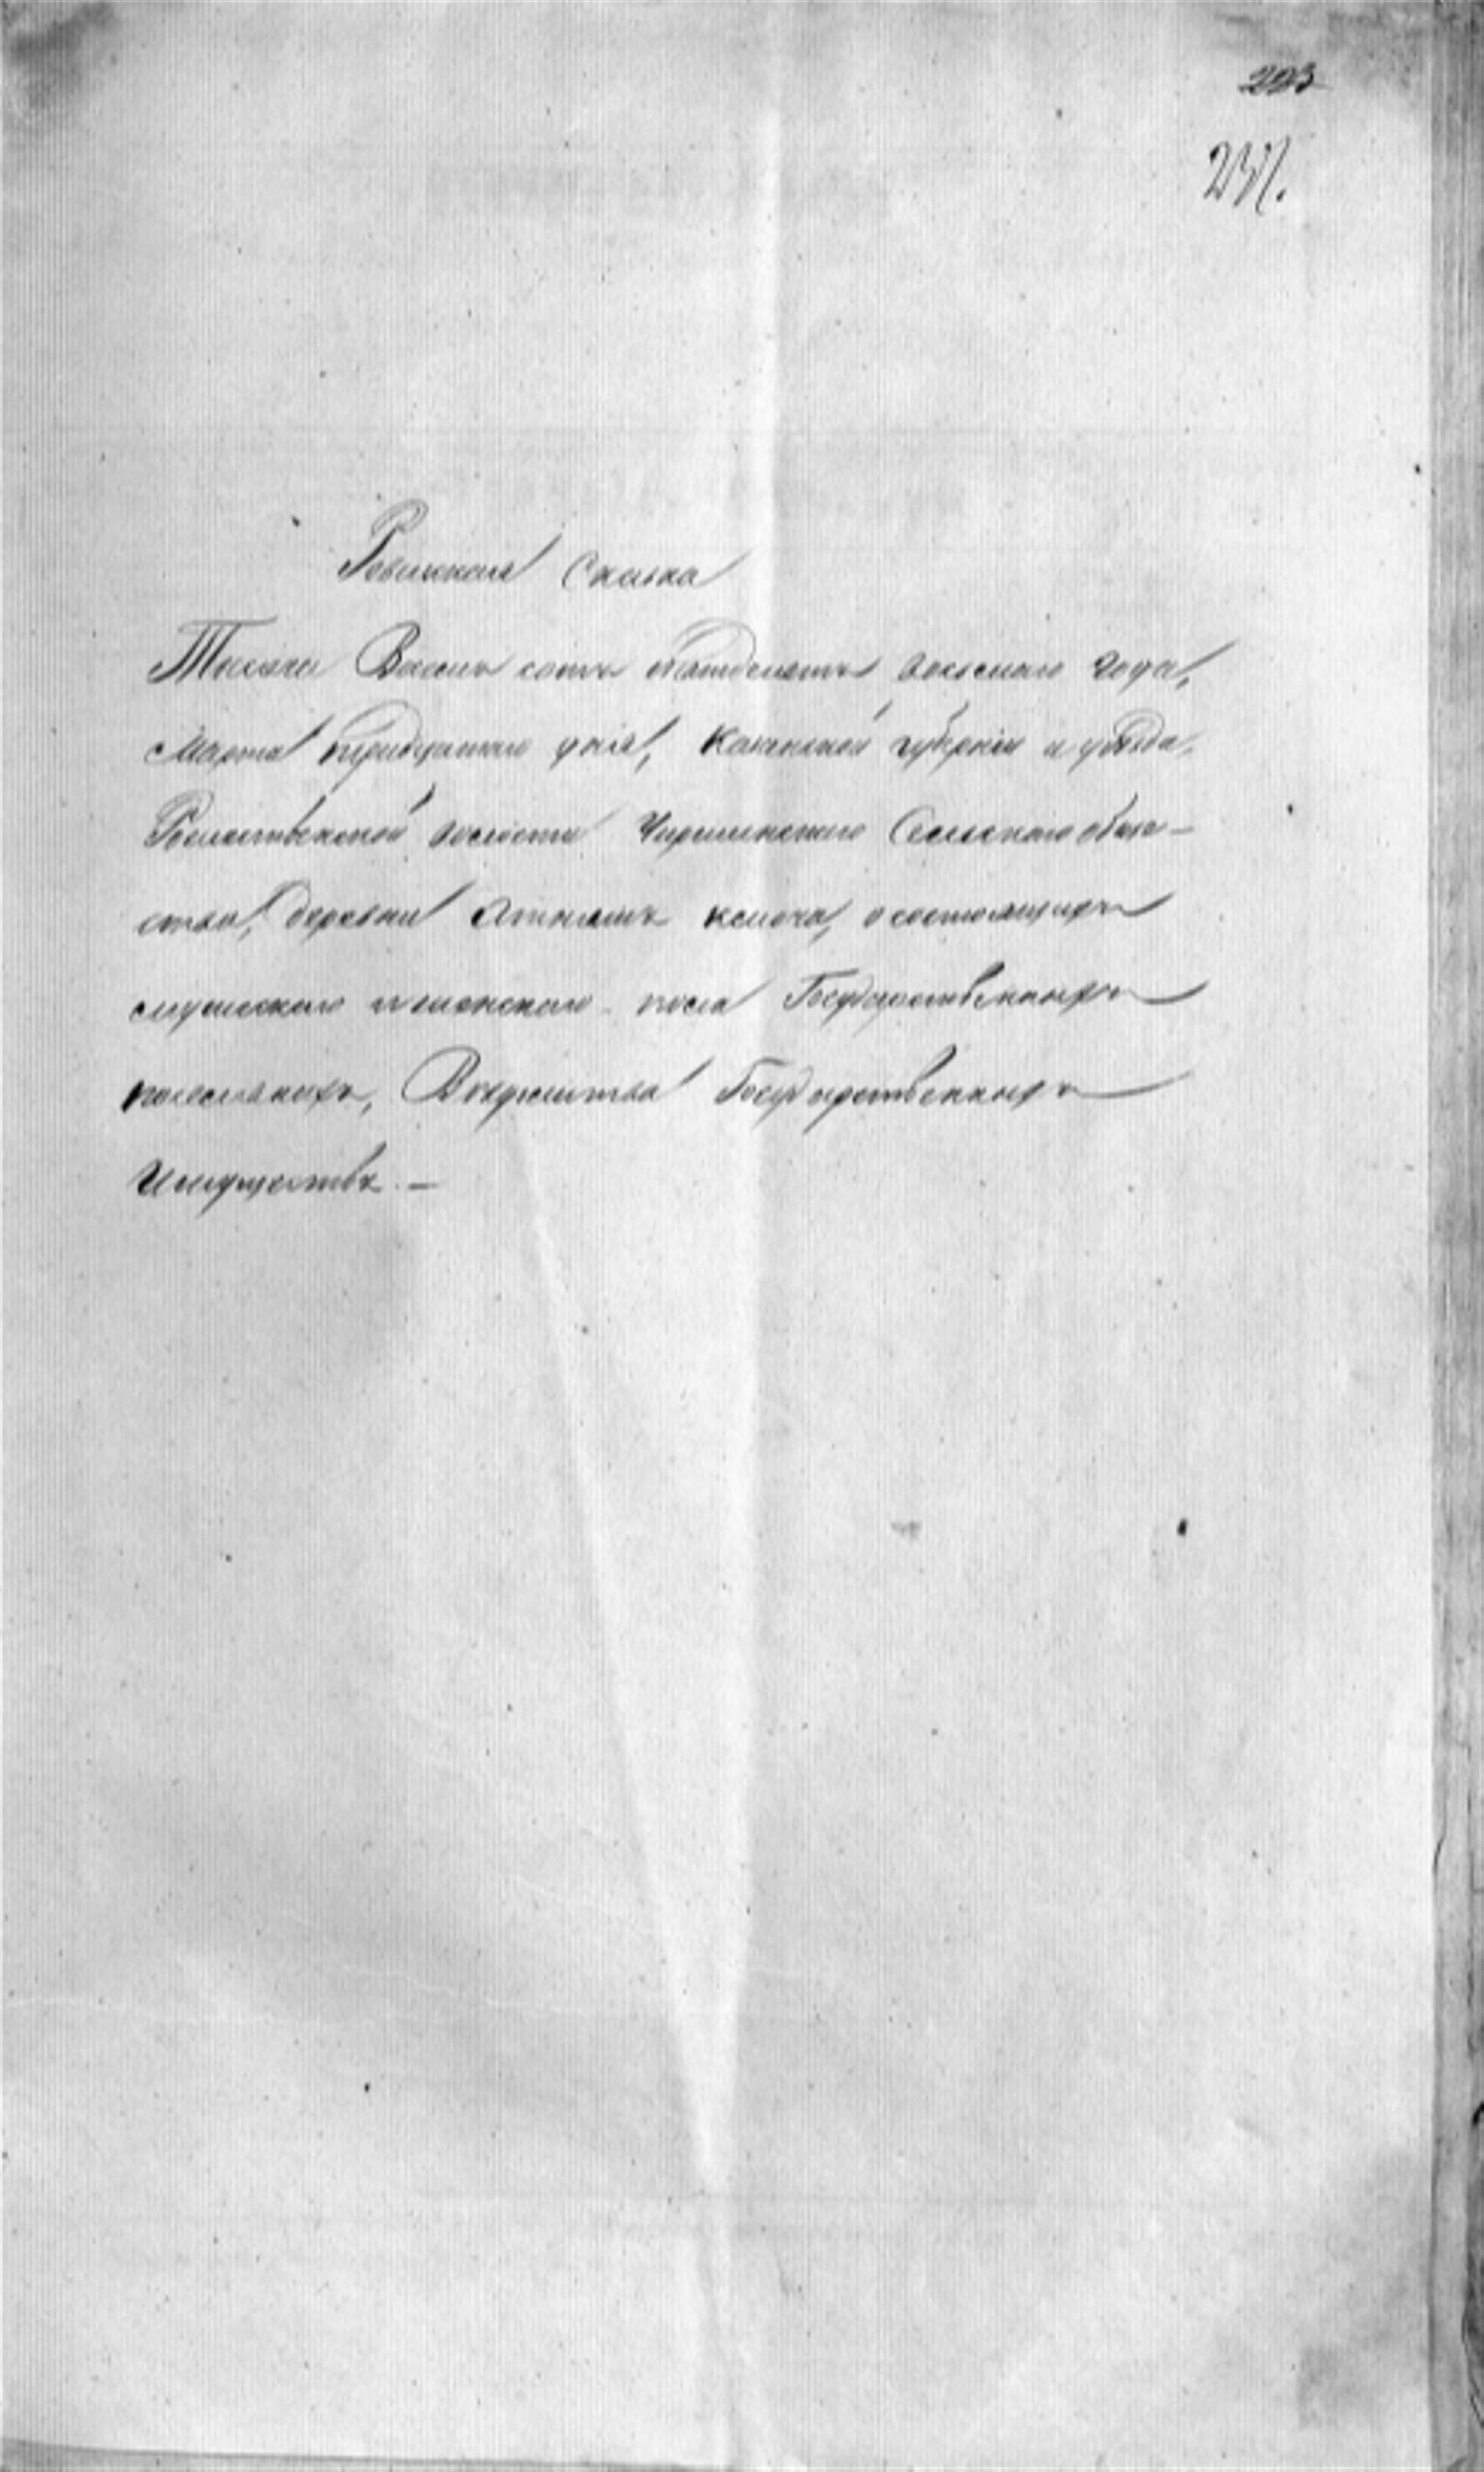 223
237.
Ревизская Сказка
Тысяча Восемь сотъ пятьдесятъ осьмаго года,
Марта тридцатаго дня, Казанской губерніи и уѣзда,
Рождественской волости Чирпинскаго Сельскаго обще-
ства, деревни Атнашъ ключа, о состоящихъ
мужескаго и женскаго пола Государственныхъ
поселянахъ, Вѣдомства Государственныхъ
Имуществъ. —